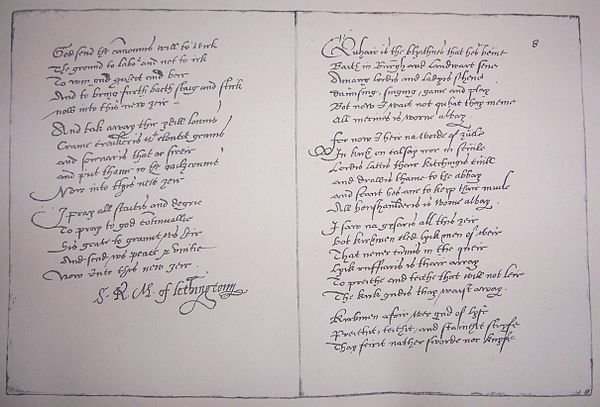 God send ye comonnis will to wirk
The ground to labor and not to irk
To win gud quheit and beir
And to bring furth baith staig and stirk
now into this new zeir
And tak away thir lounis
wt clouted gounis
and sornaris that ar sweir
and put thame in the
Now into this new zeir
I pray all staitis and degrie
To pray to god continuallie
His grace to grant ws heir
And send ws peace & vnitie
Now Into this new zeir
S. R. M. of Lethingtoun
8
Quhair is the blythnes that hes beine
Baith in Burgh and Landwart seine
Amang lordis and ladyis schene
daunsing, singing, game and play
Bot now I wait not quhat thay meine
All merines is worne away.
For now I heir na worde of zuile
In kirk on calsay nor in scuile
Lordis lattis thair kitchingis cuill
and drawis thame to the abbay
and scant hes ane to keep thair muile
All houshaulderis is worne away.
I saw na gysaris all this zeir
bot kirkmen cled lyk men of weir
That never cumis in the queir
Lyk ruffianis is thair array
To preiche and teiche that will not leir
The kirk gudis thay waist away.
Kirkmen afoir wer gud of lyfe
Preichit, teichit, and stanchit stryfe
Thay feirit nather sworde nor knyfe